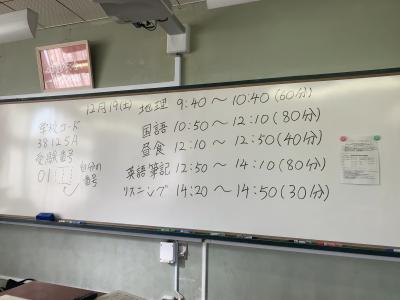 12月19日(土) 地理 9:40〜10:40(60分)
国語 10:50〜12:10(80分)
昼食 12:10〜12:50(40分)
英語筆記 12:50〜14:10(80分)
リスニング 14:20〜14:50(30分)
学校コード
38125A
受験番号
01
自分の
番号